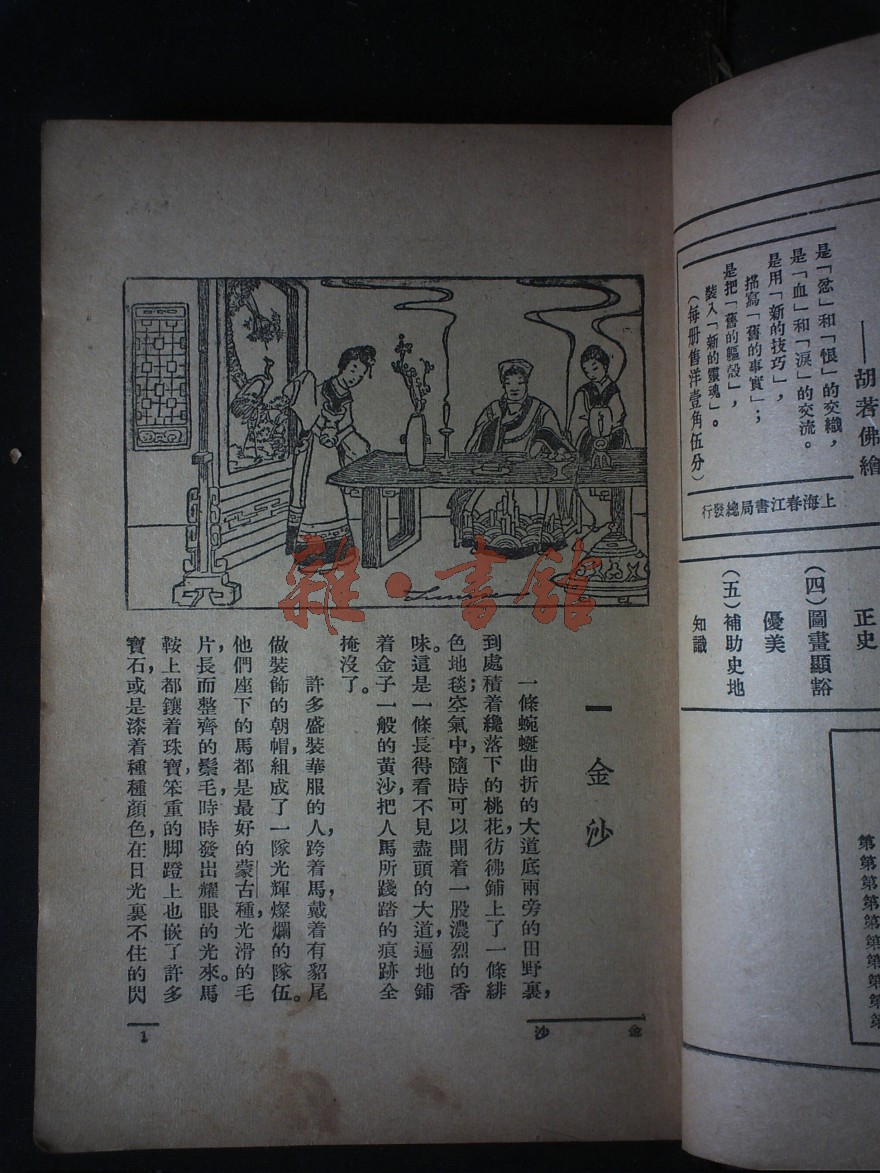 ——胡著佛繪
是「忿」和「恨」的交織，
是「血」和「淚」的交流。
是用「新的技巧」，
描寫「舊的事實」；
是把「舊的軀殼」，
裝入「新的靈魂」。
（每册售洋壹角伍分）
上海春江書局總發行
正史
（四）圖畫顯豁
優美
（五）補助史地
知識
第
第
第
第
第
第
第
第
第
一 金沙
一條蜿蜒曲折的大道底兩旁的田野裏，
到處積着纔落下的桃花，彷彿鋪上了一條緋
色地毯；空氣中，隨時可以聞着一股濃烈的香
味。這是一條長得看不見盡頭的大道，遍地鋪
着金子一般的黃沙，把人馬所踐踏的痕跡全
掩沒了。
許多盛裝華服的人，跨着馬，戴着有貂尾
做裝飾的朝帽，組成了一隊光輝燦爛的隊伍。
他們座下的馬都是最好的蒙古種，光滑的毛
片，長而整齊的鬃毛，時時發出耀眼的光來。馬
鞍上都鑲着珠寶，笨重的脚蹬上也嵌了許多
寶石，或是漆着種種顏色，在日光裏不住的閃
金沙
1
雜·書館